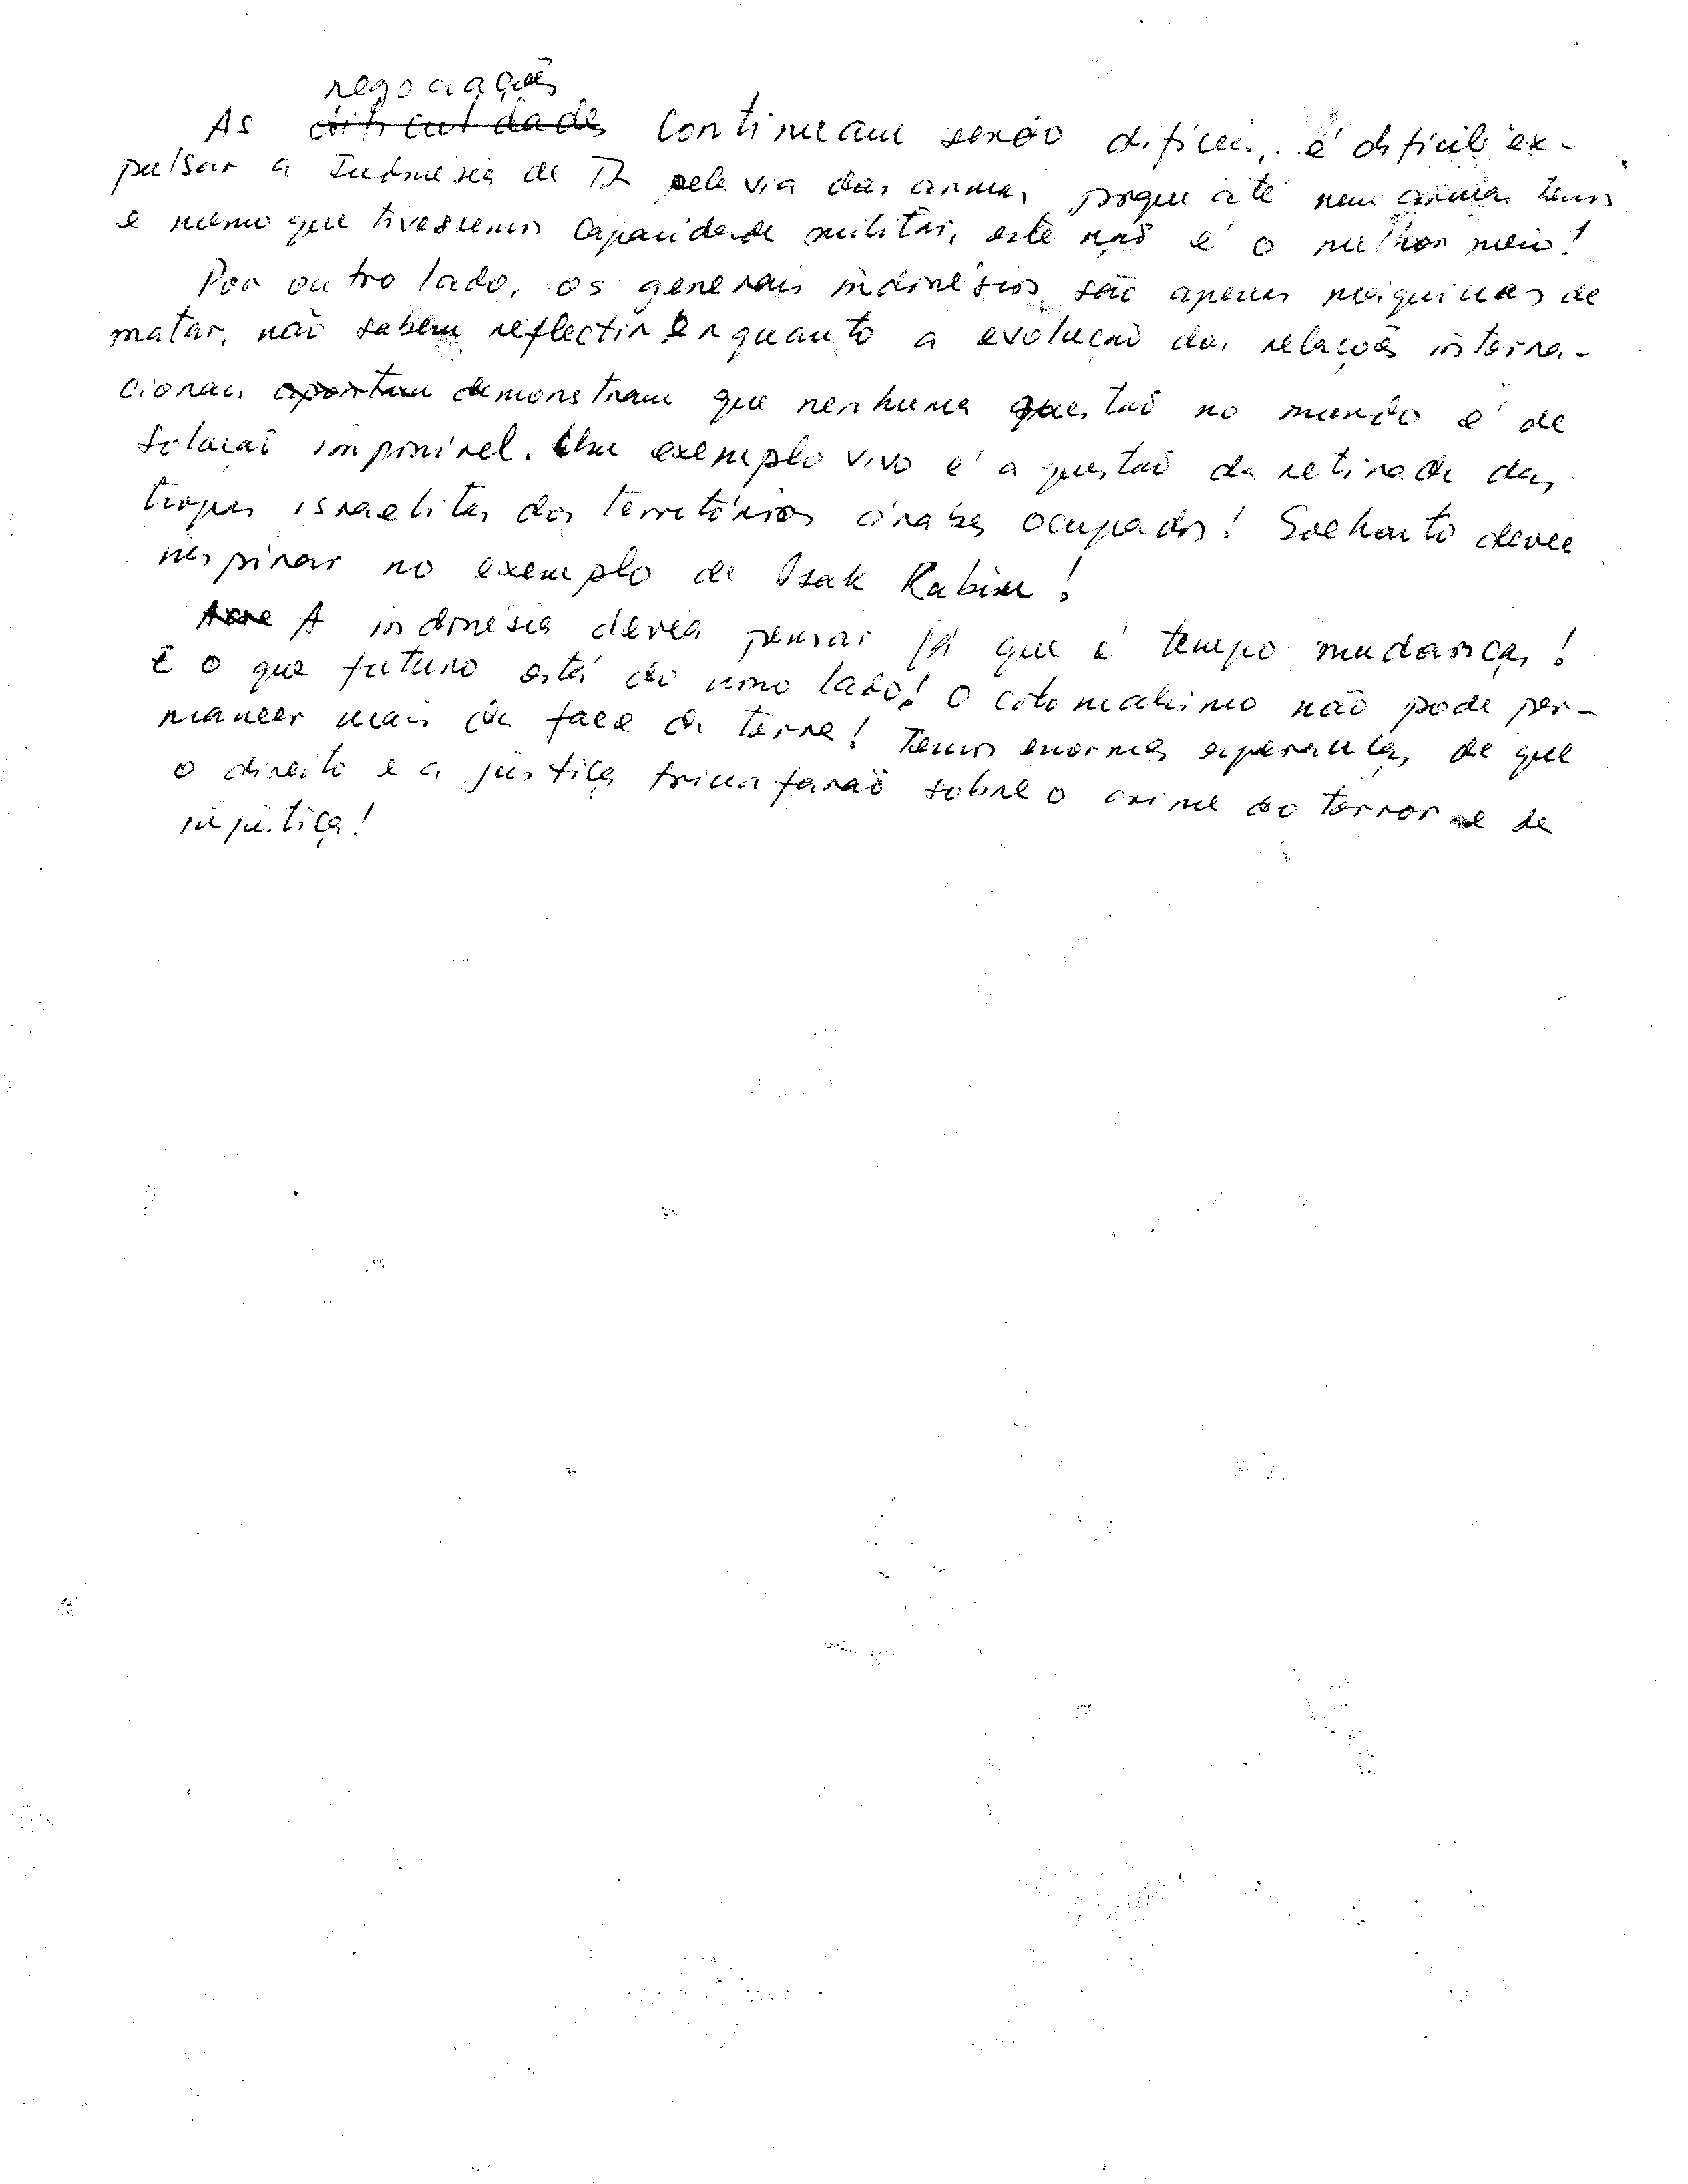 negociações
As dificuldades continuam sendo difíceis, é difícil ex-
pulsar a Indonésia de TL pela via das armas, porque até nem armas temos
e mesmo que tivessemos capacidade militar, este não é o melhor meio!
Por outro lado, os generais indonésios são apenas máquinas de
matar, não sabem reflectir enquanto a evolução das relações interna-
cionais apontam demonstram que nenhuma questão no mundo é de
solução impossível. Um exemplo vivo é a questão da retirada das
tropas israelitas dos territórios árabes ocupados! Soeharto devia
inspirar no exemplo de Isak Rabin!
A indonésia devia pensar já que é tempo mudanças!
E o que futuro está do nosso lado! O colonialismo não pode per-
manecer mais da face da terra! Temos enormes esperanças, de que
o direito e a justiça triunfarão sobre o crime do terror e de
injustiça!